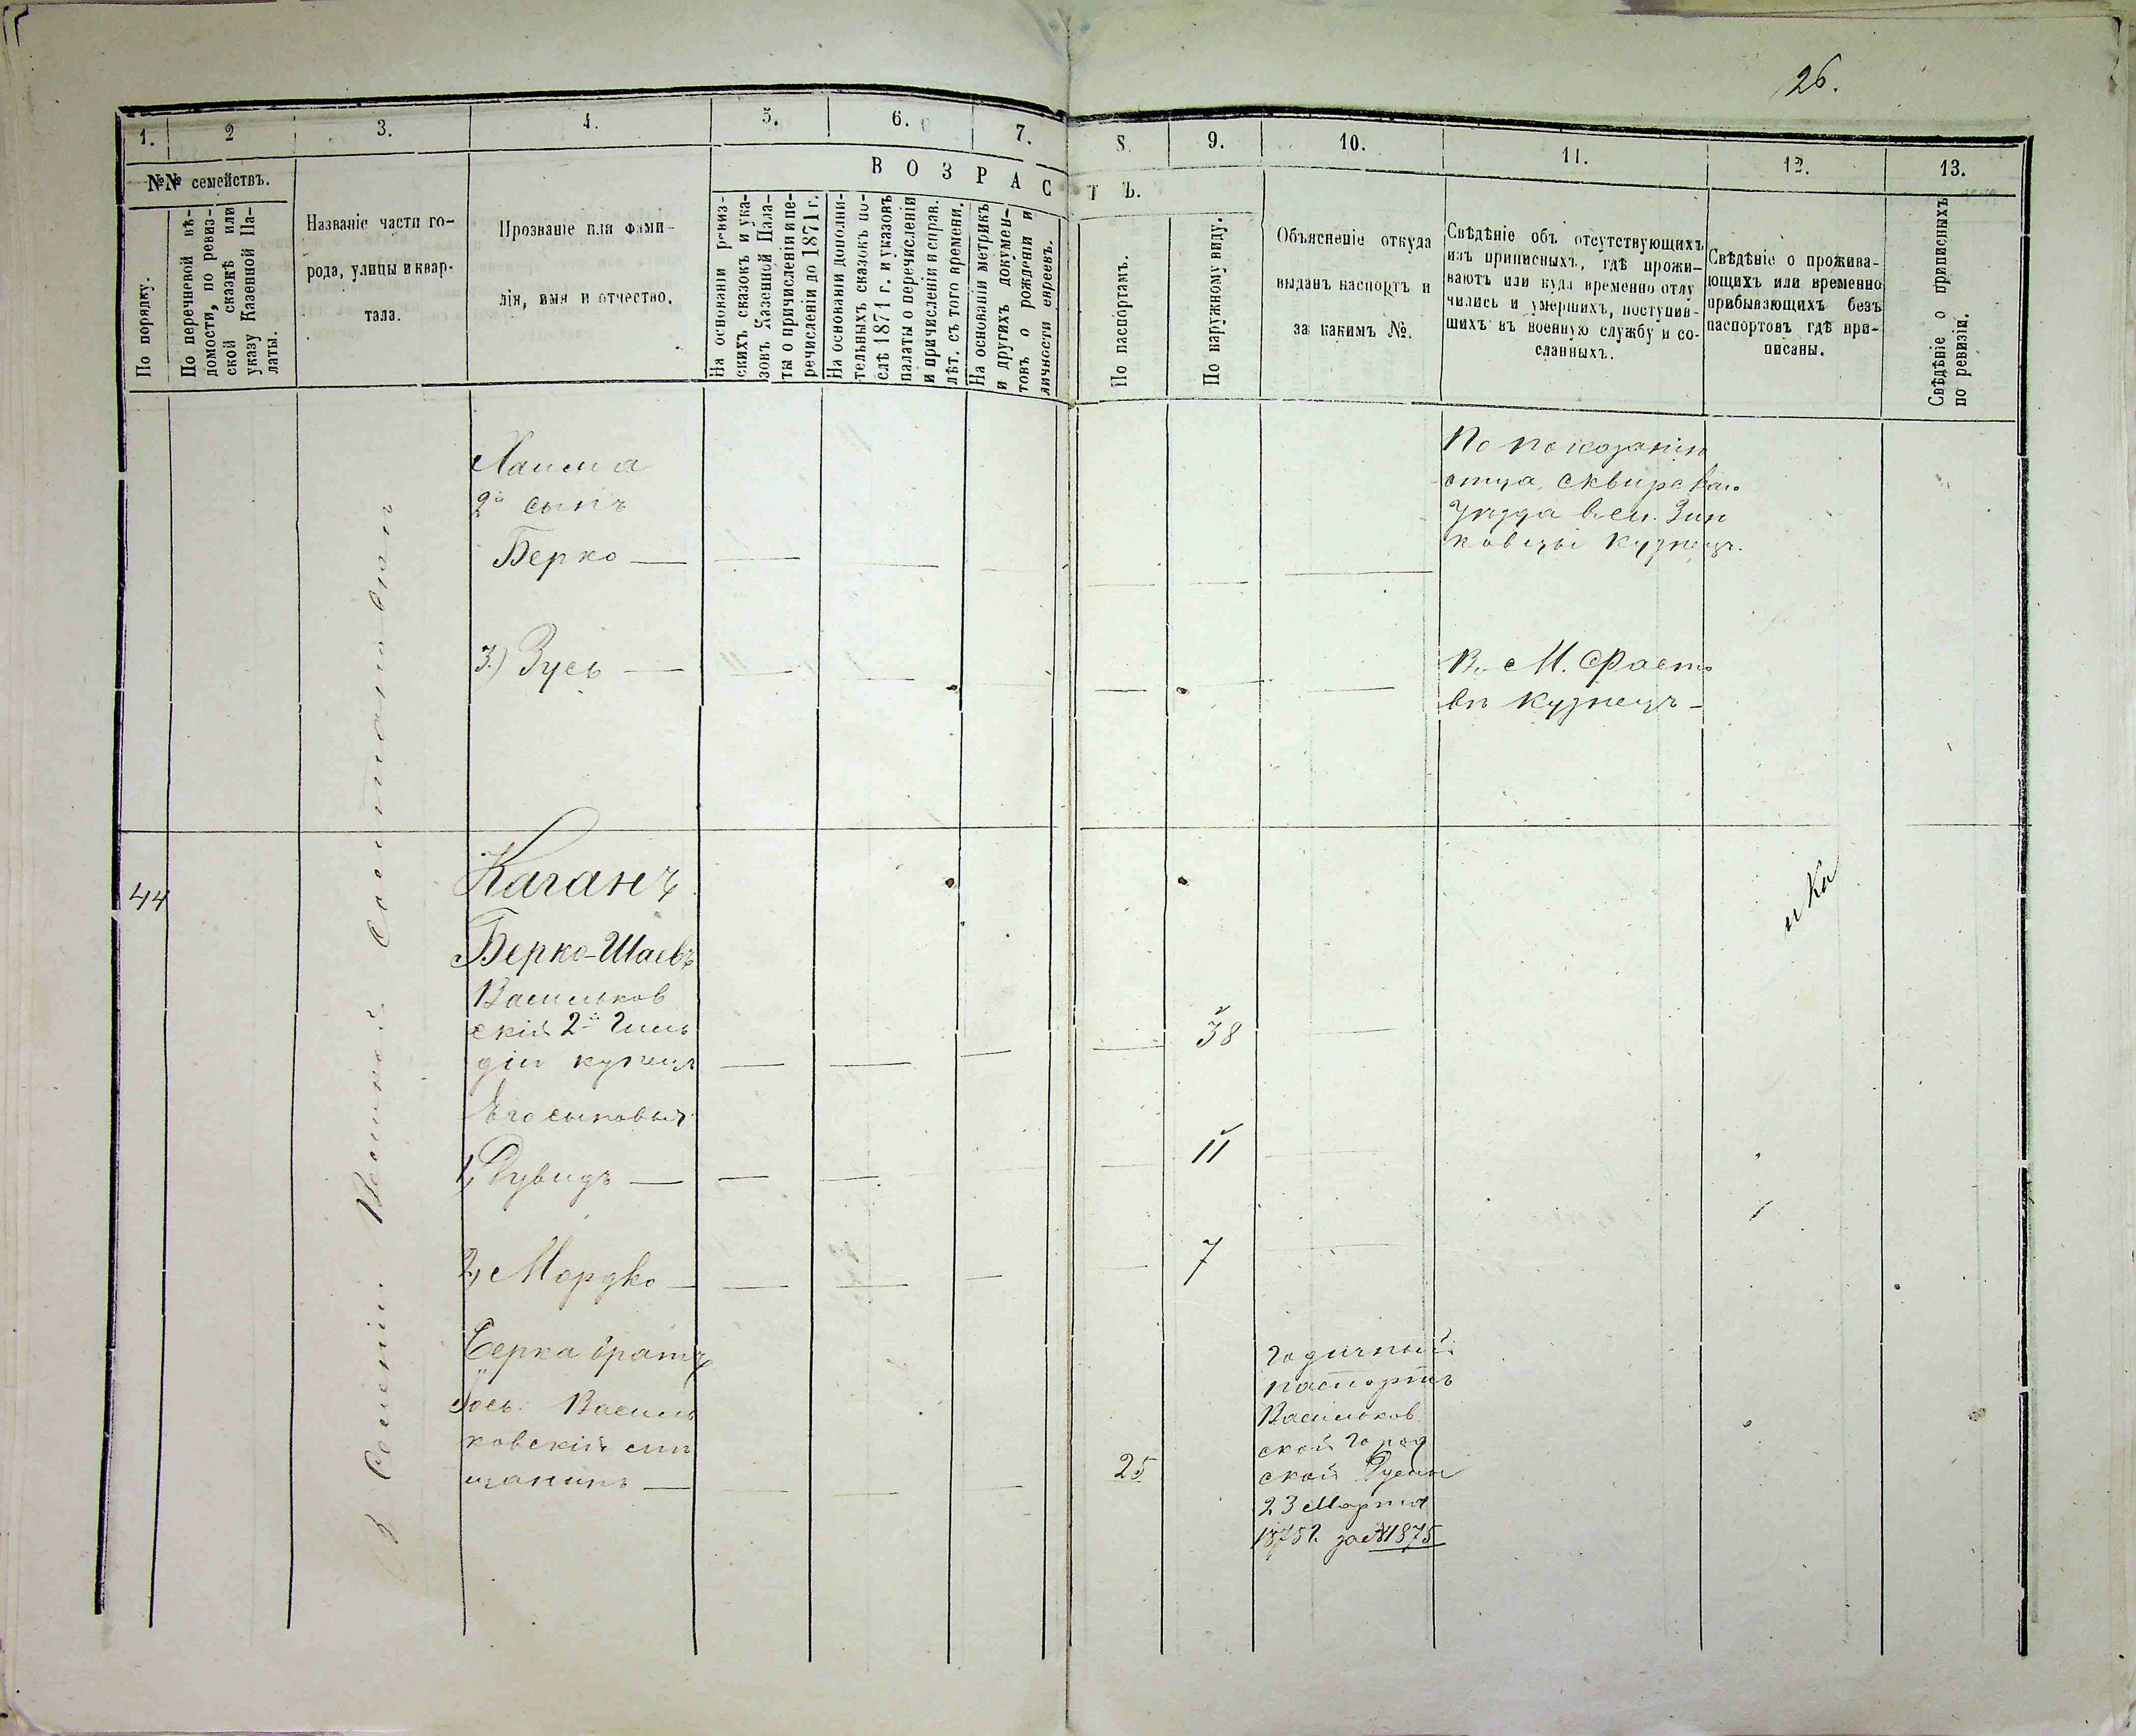 26.
1.
2
3.
4.
5.
6.
7.
8.
9.
10.
11.
12.
13.
№№ семействъ.
В О З Р А С Т Ъ.
По порядку.
По перечневой вѣ-
домости, по ревиз-
ской сказкѣ или
указу Казенной Па-
латы.
Названіе части го-
рода, улицы и квар-
тала.
Прозваніе или фами-
лія, имя и отчество.
На основаніи ревиз-
скихъ сказокъ и ука-
зовъ Казенной Пала-
ты о причисленіи и пе-
речисленіи до 1871 г.
На основаніи дополни-
тельныхъ сказокъ по-
слѣ 1871 г. и указовъ
палаты о перечисленіи
и причисленіи и справ.
лѣт. съ того времени.
На основаніи метрикъ
и другихъ докумен-
товъ о рожденіи и
личности евреевъ.
По паспортамъ.
По наружному виду.
Объясненіе откуда
выданъ паспортъ и
за какимъ №.
Свѣдѣніе объ отсутствующихъ
изъ приписныхъ, гдѣ прожи-
ваютъ или куда временно отлу
чились и умершихъ, поступив-
шихъ въ военную службу и со-
сланныхъ.
Свѣдѣніе о прожива-
ющихъ или временно
прибывающихъ безъ
паспортовъ гдѣ при-
писаны.
Свѣдѣніе о приписныхъ
по ревизіи.
Хаима
2й сынъ
Берко —
По показанію
отца, Сквирскаго
Уѣзда в сел. Зин
ковцы кузнецъ.
3.) Зусь —
В. М. Фасто
вѣ кузнецъ —
44
Каганъ
Берко-Шаевъ
Васильков
скій 2й Гиль
діи купецъ
38
Его сыновья
1, Дувидъ —
11
2, Мордко —
7
Берка братъ
Іось Василь
ковскій мѣ
щанинъ —
25
Годичный
паспортъ
Васильков
ской Город
ской Думы
23 Марта
1875 г. за № 1875